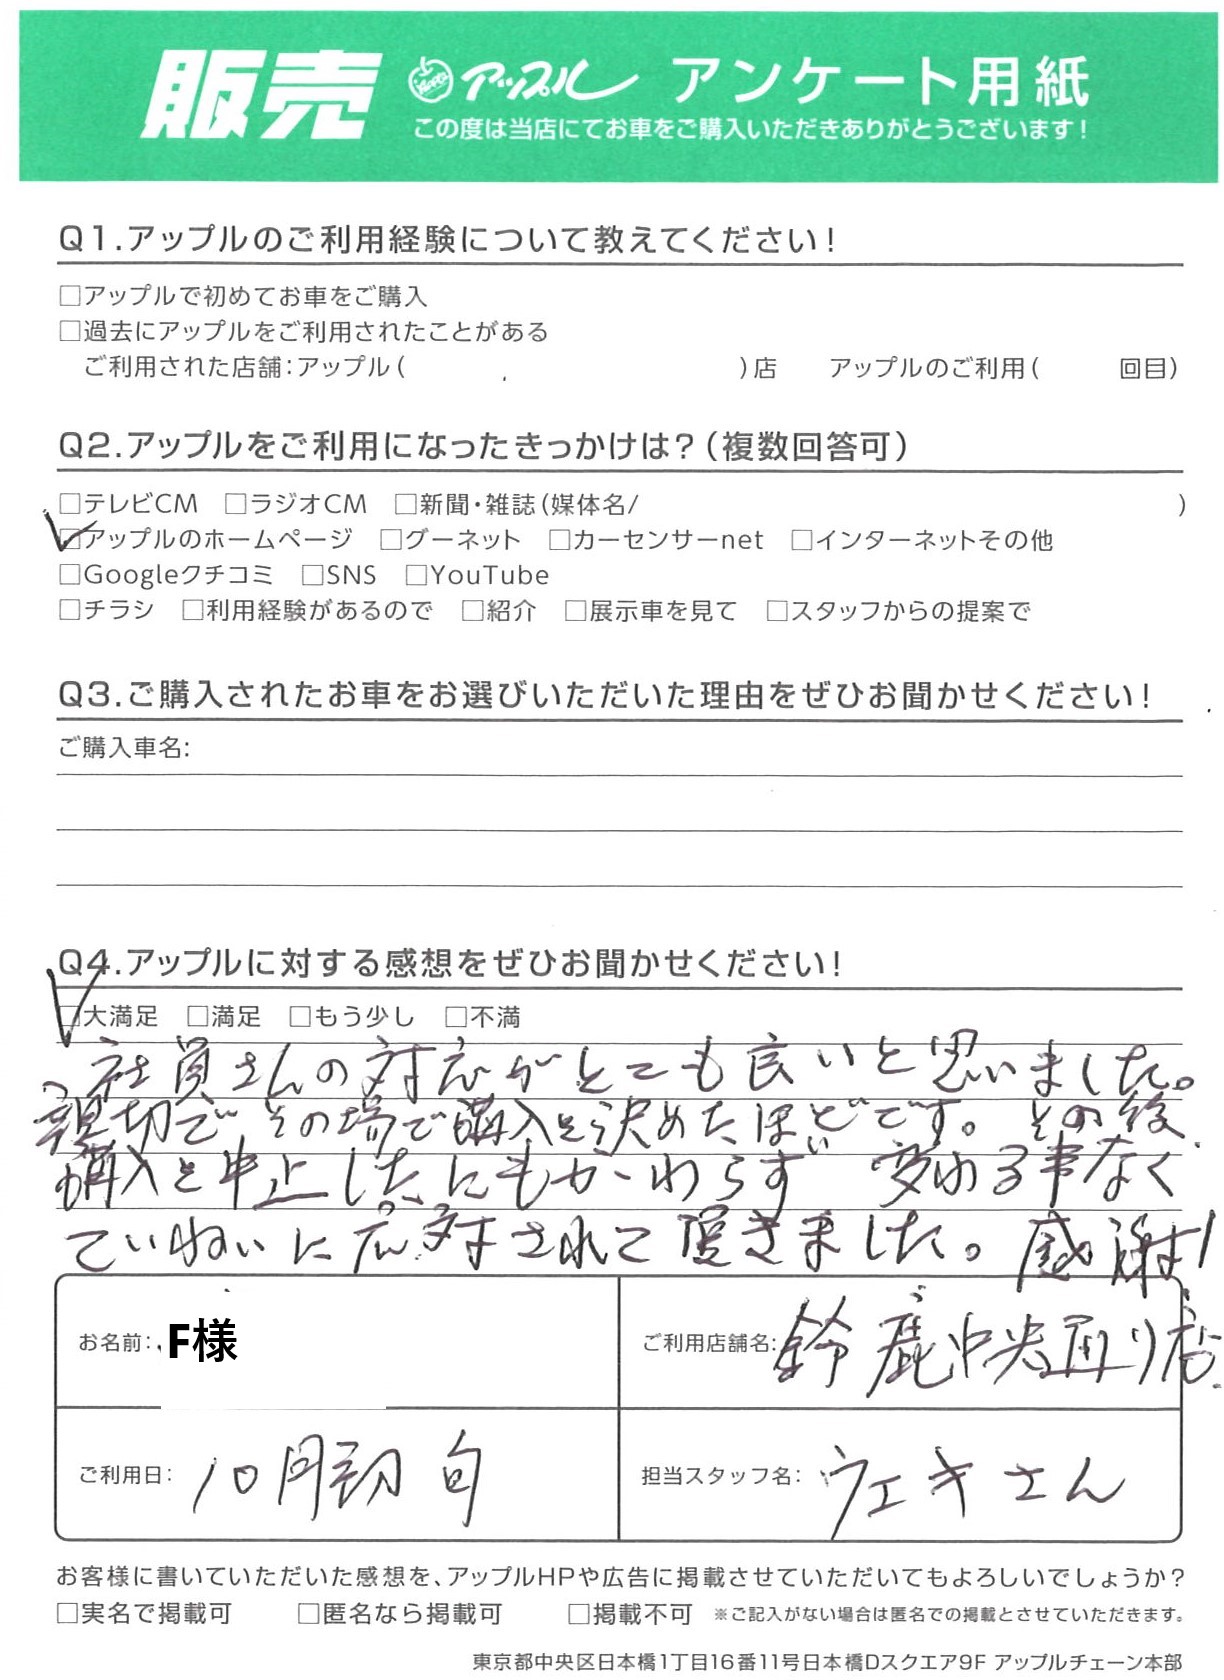 販売 アップル アンケート用紙
この度は当店にてお車をご購入いただきありがとうございます！
Q1.アップルのご利用経験について教えてください！
□アップルで初めてお車をご購入
□過去にアップルをご利用されたことがある
ご利用された店舗：アップル（ ）店 アップルのご利用（ 回目）
Q2.アップルをご利用になったきっかけは？（複数回答可）
□テレビCM □ラジオCM □新聞・雑誌（媒体名/ ）
☑アップルのホームページ □グーネット □カーセンサーnet □インターネットその他
□Googleクチコミ □SNS □YouTube
□チラシ □利用経験があるので □紹介 □展示車を見て □スタッフからの提案で
Q3.ご購入されたお車をお選びいただいた理由をぜひお聞かせください！
ご購入車名：
Q4.アップルに対する感想をぜひお聞かせください！
☑大満足 □満足 □もう少し □不満
社員さんの対応がとても良いと思いました。
親切でその場で購入を決めたほどです。その後
購入を中止したにもかかわらず 変わる事なく
ていねいに応対されて頂きました。感謝！
お名前： F様 ご利用店舗名： 鈴鹿中央通り店
ご利用日： 10月初旬 担当スタッフ名： ウエキさん
お客様に書いていただいた感想を、アップルHPや広告に掲載させていただいてもよろしいでしょうか？
□実名で掲載可 □匿名なら掲載可 □掲載不可 ※ご記入がない場合は匿名での掲載とさせていただきます。
東京都中央区日本橋1丁目16番11号日本橋Dスクエア9F アップルチェーン本部